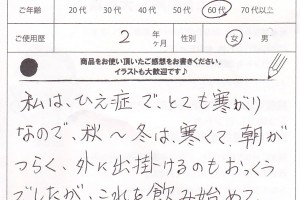 ご年齢 20代 30代 40代 50代 60代 70代以上
ご使用歴 2 年 ヶ月 性別 女・男
商品をお使い頂いたご感想をお書きください。
イラストも大歓迎です♪
私は、ひえ症で、とても寒がり
なので、秋〜冬は、寒くて、朝が
つらく、外に出掛けるのもおっくう
でしたが、これを飲み始めて、